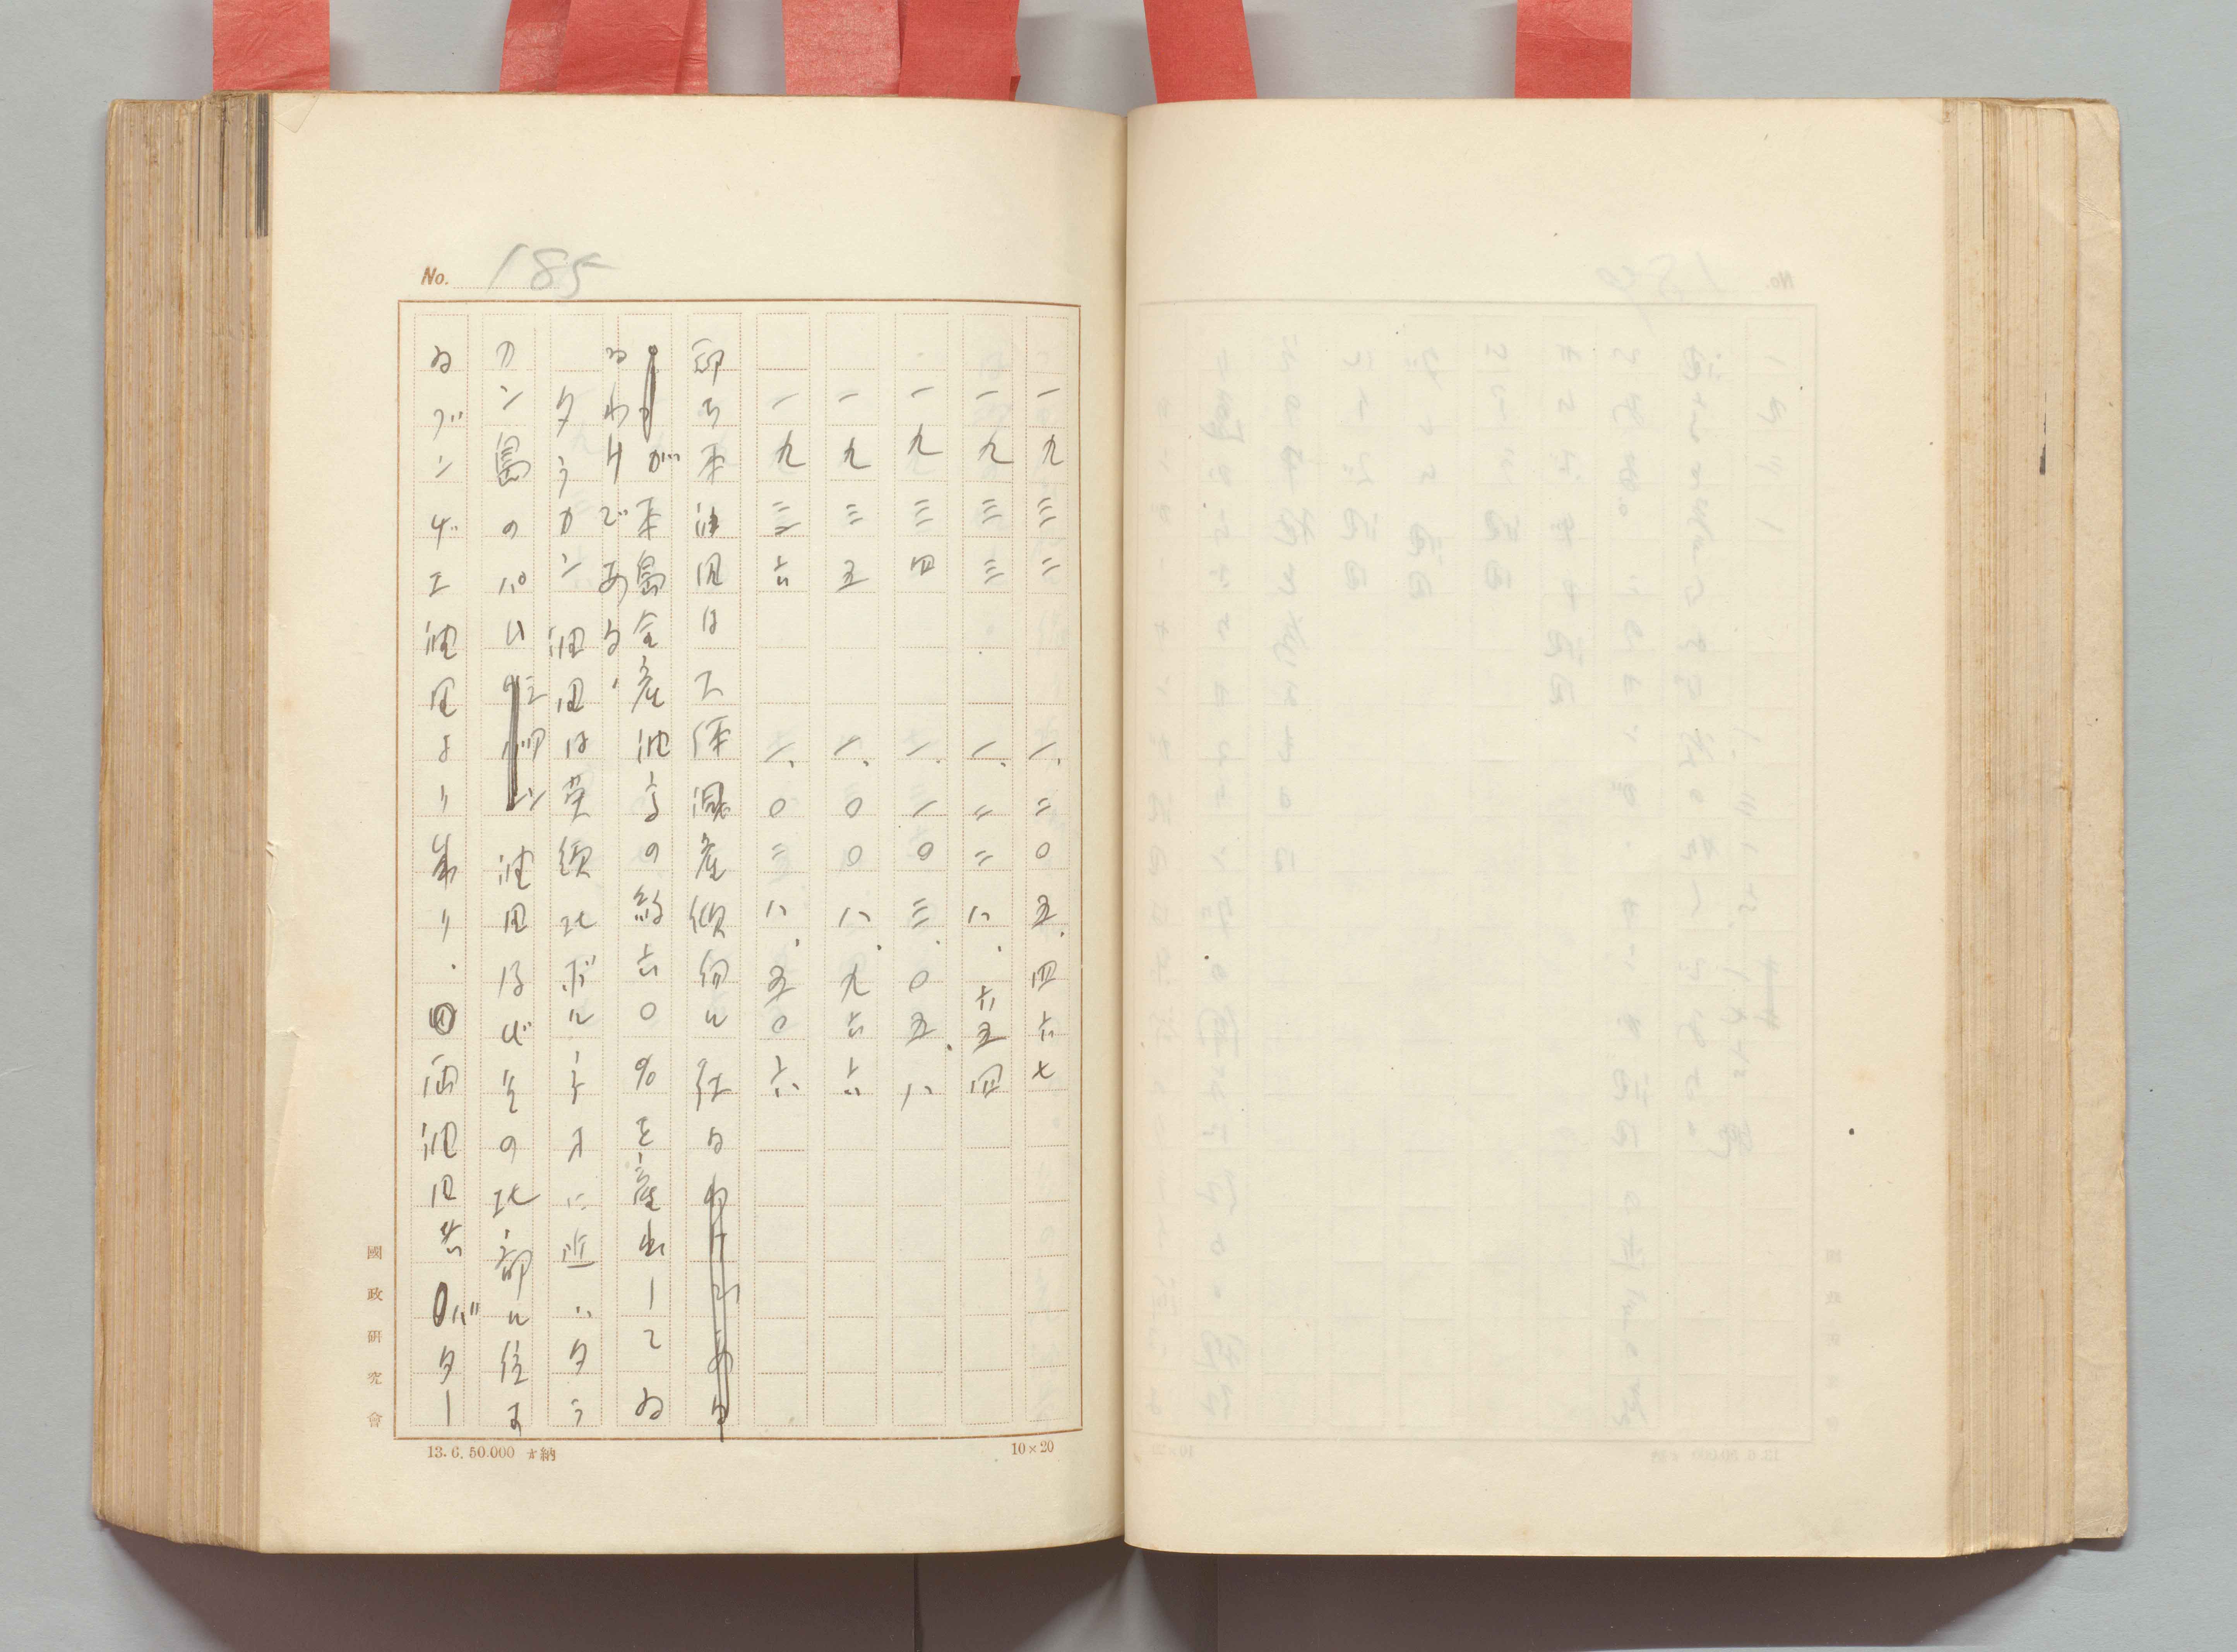 No. 185
一九三二　一、二〇五、四六七
一九三三　一、二二八、六五四
一九三四　一、一〇三、〇五、八
一九三五　一、〇〇八、九六六
一九三六　一、〇二八、五〇六
即ち本油田は大体減産傾向に在るわけである
が本島全産油高の約六〇%を産出してゐ
るわけである、
タラカン油田は英領北ボルネオに近いタラ
カン島のパム油田の北部に位す
るブンゲエ油田より成り、両油田共バター
國政研究會
13. 6. 50.000 納
10×20